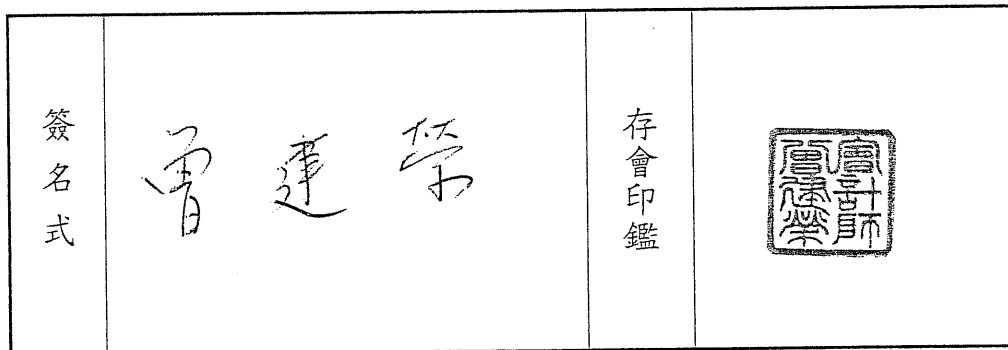 簽名式
曾建榮
存會印鑑
會計師
曾建榮